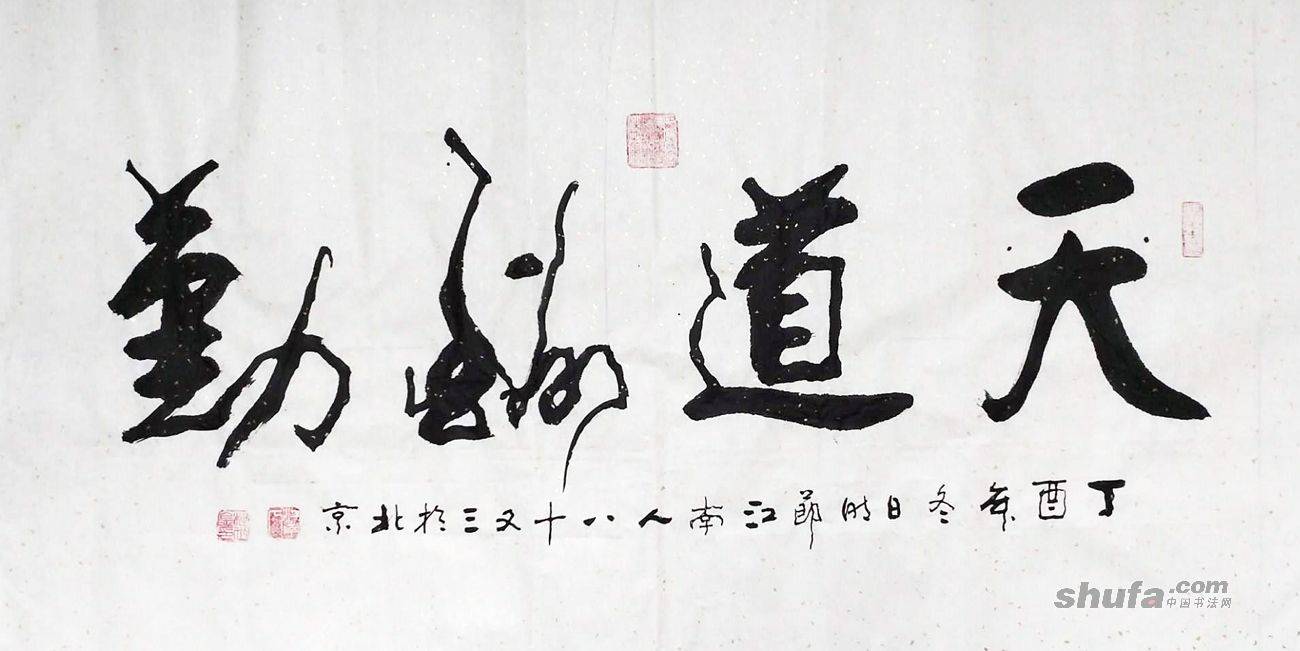 天道酬勤
丁酉年冬日时节江南人八十又三於北京
shufa.com
中国书法网